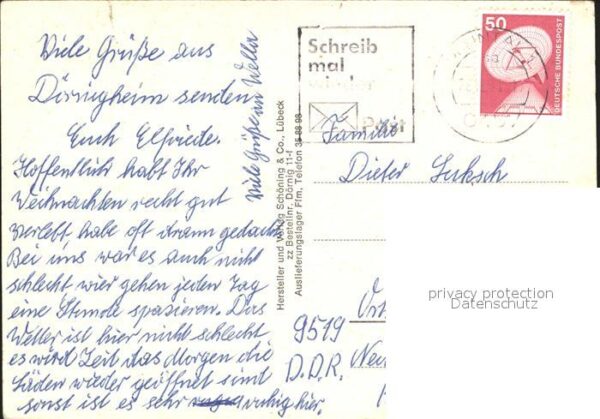 Viele Grüße aus
Dörnigheim senden
Euch Elfriede.
Hoffentlich habt Ihr
Weihnachten recht gut
verlebt, habe oft daran gedacht
Bei uns war es auch nicht
schlecht wier gehen jeden Tag
eine Stunde spazieren. Das
Wetter ist hier nicht schlecht
es wird Zeit das Morgen die
Läden wieder geöffnet sind
sonst ist es sehr ruhig hier.
Viele Grüße an
Hersteller und Verlag Schöning & Co., Lübeck
zz Bestellnr. Dörnig 11-f
Auslieferungslager Ffm, Telefon 35 88 98
Schreib
mal
wieder
Post
50
DEUTSCHE BUNDESPOST
Familie
Dieter
9519
D.D.R.
privacy protection
Datenschutz